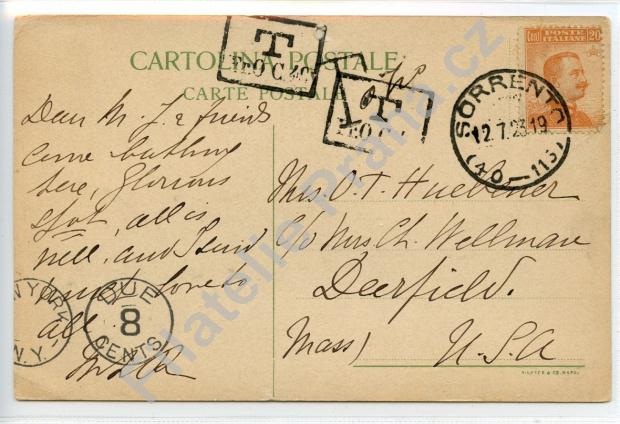 CARTOLINA POSTALE
CARTE POSTALE
T
T
Cent 20
POSTE ITALIANE
SORRENTO
12.7.23.19
Dear M. J. & friends
come bathing
here, Glorious
spot, all is
well, and I send
much love to
all
Mrs O. T. Huebener
c/o Mrs Ch. Wellman
Deerfield.
Mass)
U.S.A
NEW YORK
N.Y.
DUE
8
CENTS
RICHTER & CO. NAPOLI
Filatelie Praha.cz